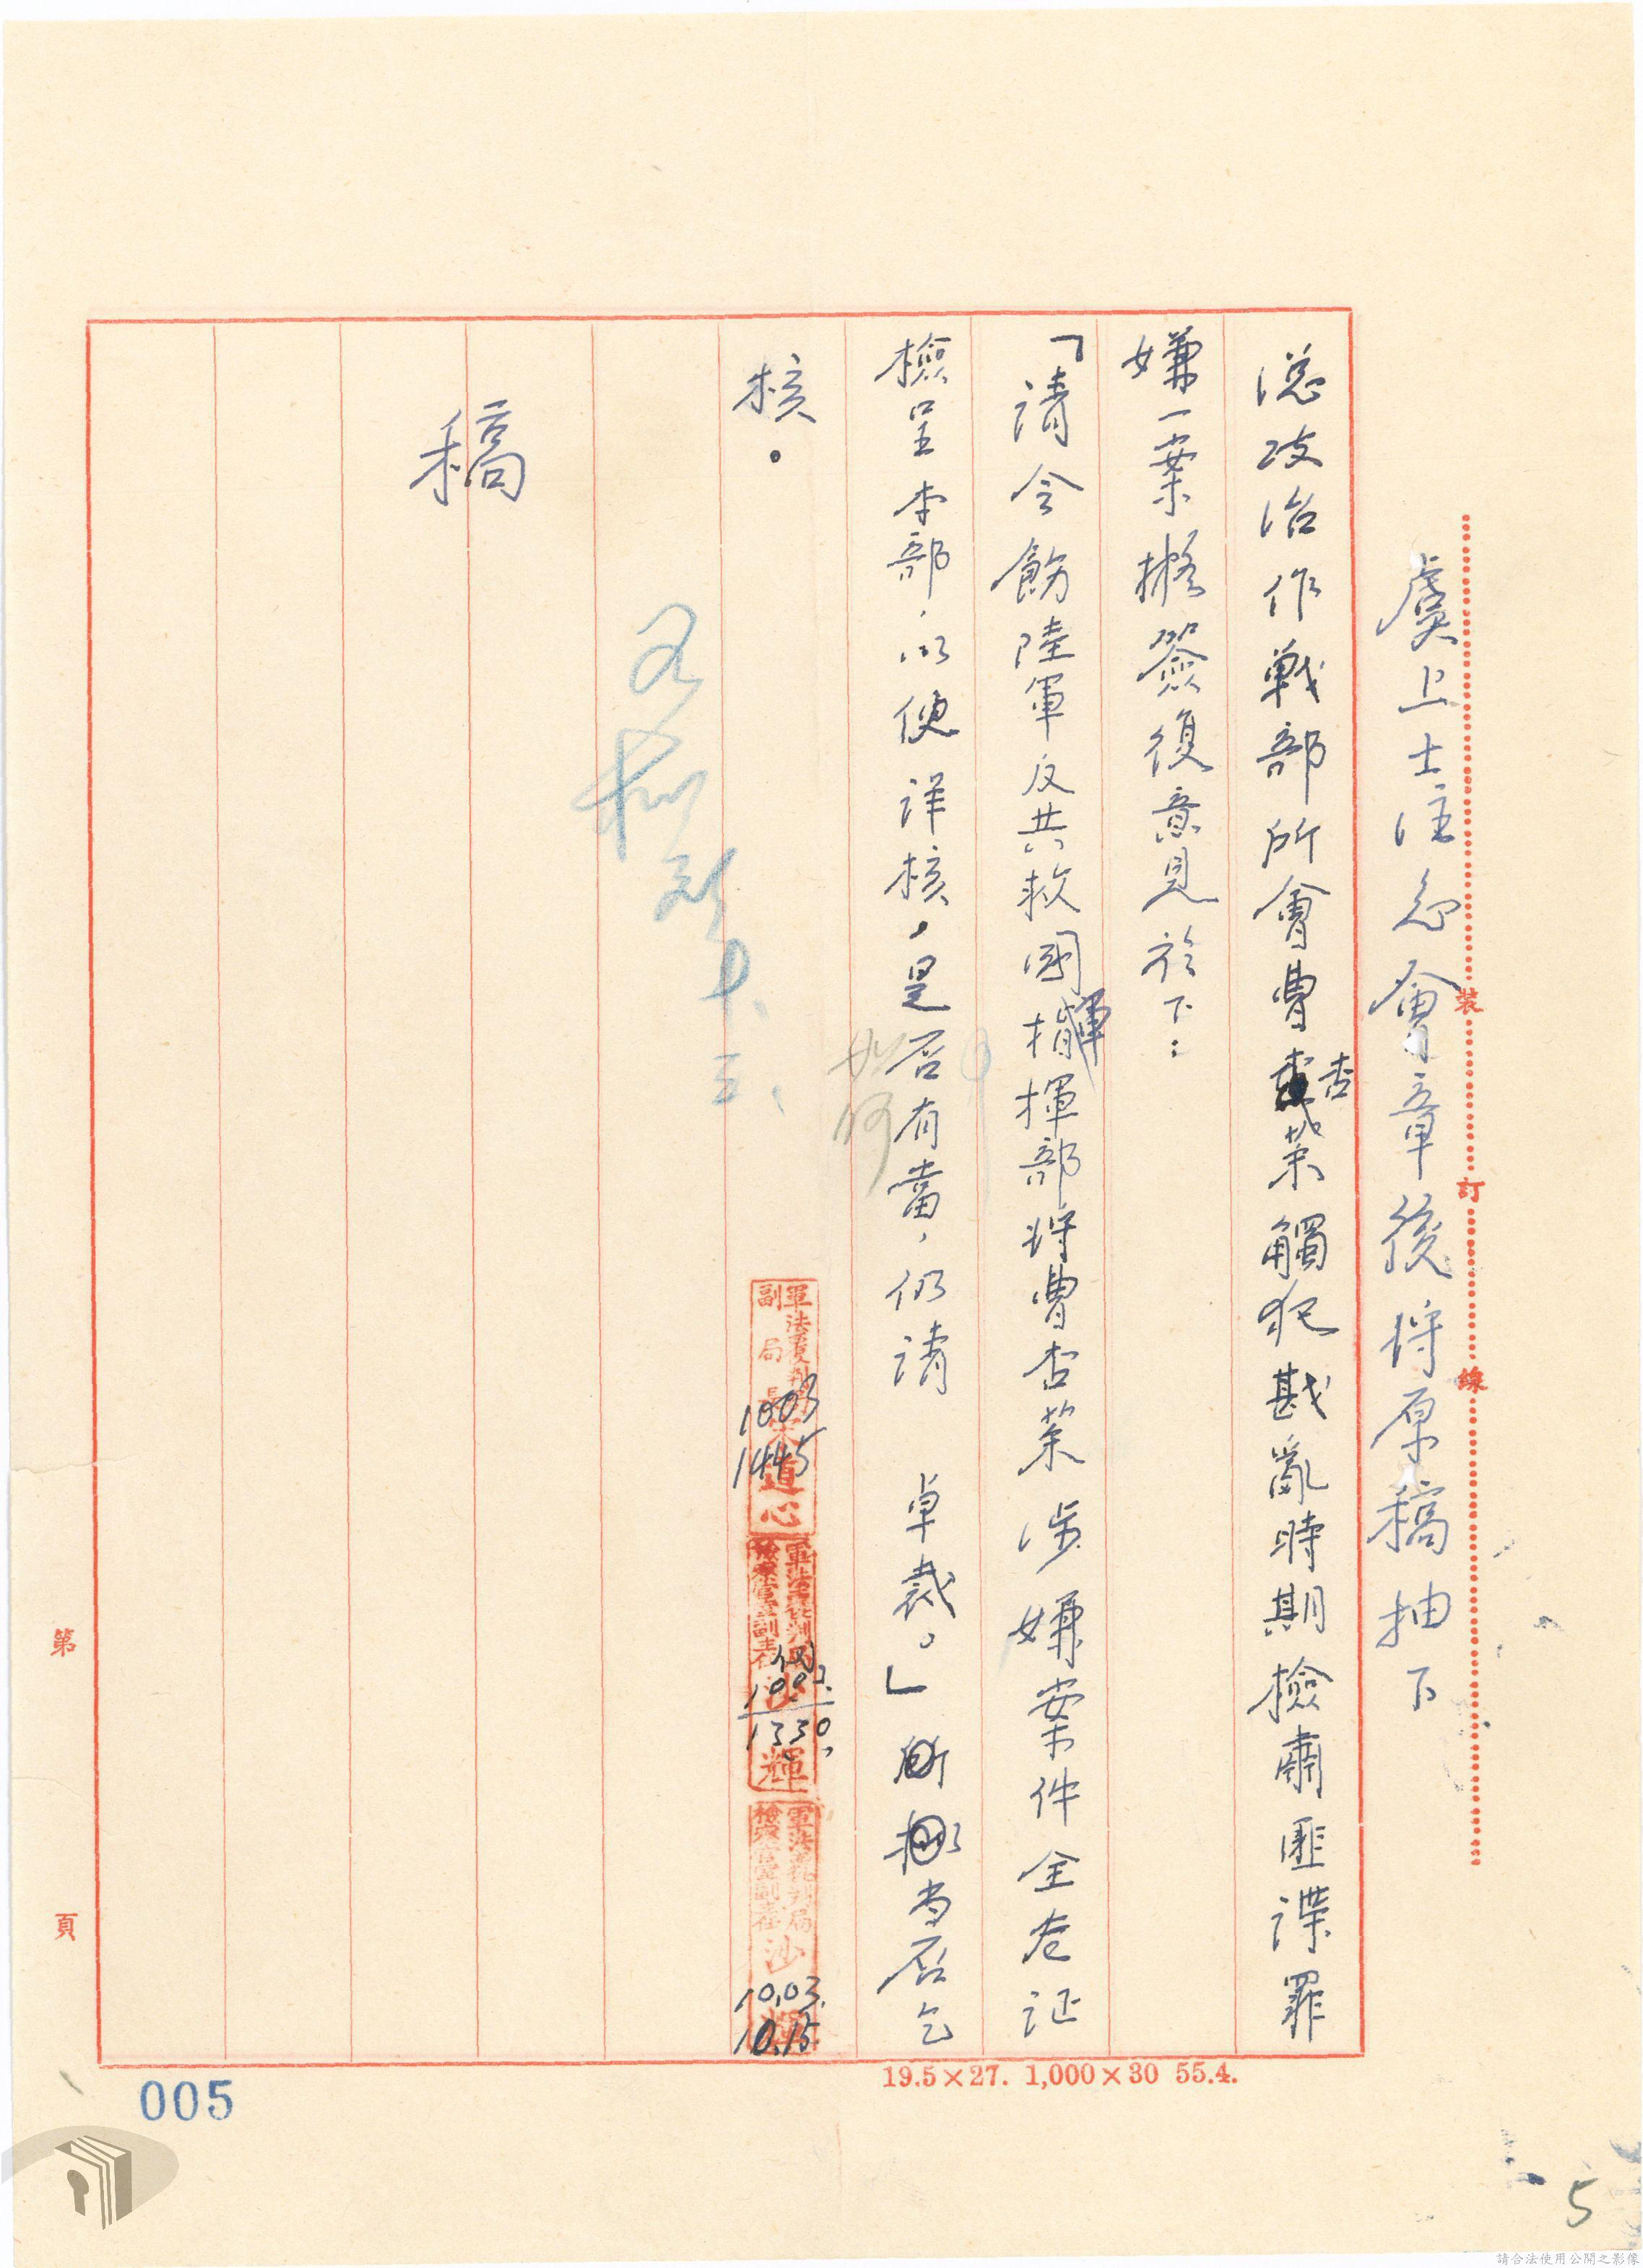 虞上士注急會章後將原稿抽下
裝訂線
總政治作戰部所會曹杏棻觸犯戡亂時期檢肅匪諜罪
嫌一案擬簽復意見於下:
「請令飭陸軍反共救國軍指揮部將曹杏棻涉嫌案件全卷証
檢呈本部,以便詳核,是否有當,仍請 卓裁。」當否乞
如何
核。
軍法覆判局
副局長
道心
1003
1445
軍法覆判局
檢察官室副主任
沙輝
1003
1330
軍法覆判局
檢察官室副主任
沙輝
10.03.
10.15
稿
第 頁
19.5×27. 1,000×30 55.4.
005
5
請合法使用公開之影像